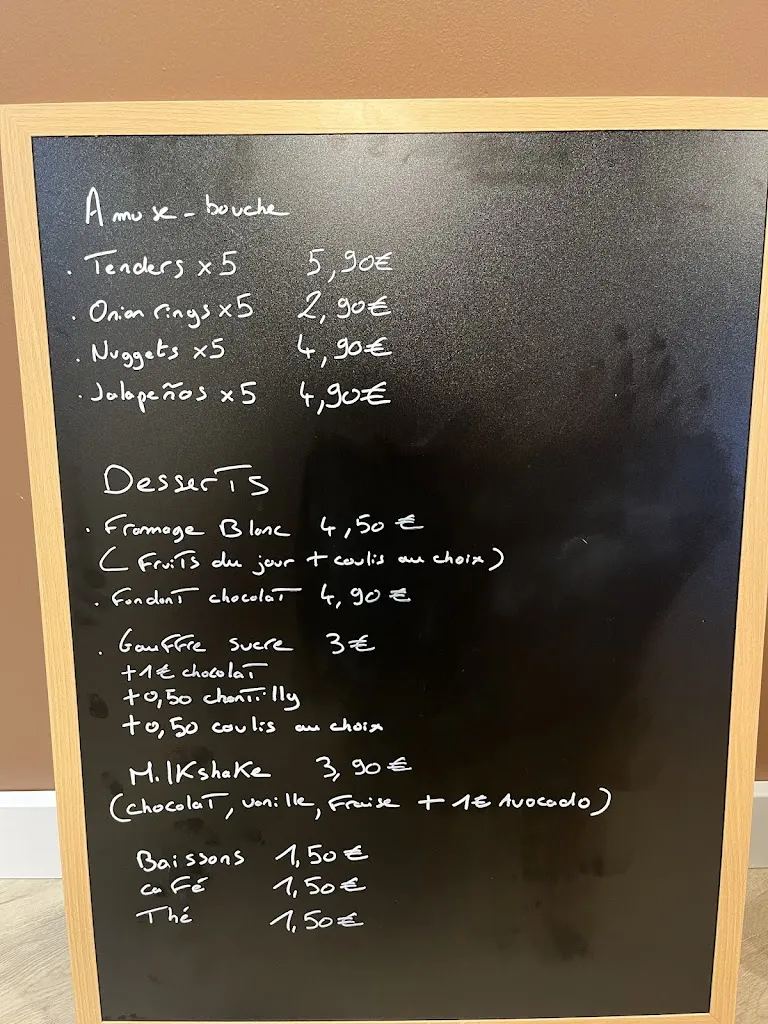 Amuse-bouche
. Tenders x5 5,90€
. Onion rings x5 2,90€
. Nuggets x5 4,90€
. Jalapeños x5 4,90€
Desserts
. Fromage Blanc 4,50€
(Fruits du jour + coulis au choix)
. Fondant chocolat 4,90€
. Gauffre sucre 3€
+1€ chocolat
+0,50 chantilly
+0,50 coulis au choix
Milkshake 3,90€
(chocolat, vanille, Fraise + 1€ Avocado)
Boissons 1,50€
café 1,50€
Thé 1,50€